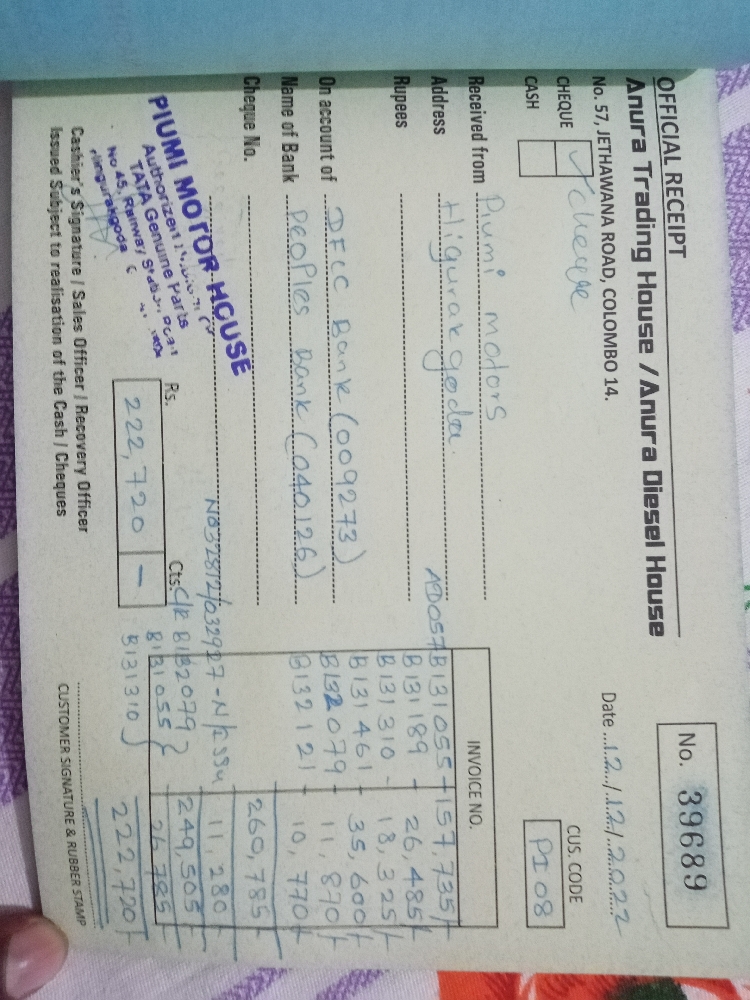 OFFICIAL RECEIPT
Anura Trading House / Anura Diesel House
No. 57, JETHAWANA ROAD, COLOMBO 14.
No. 39689
Date 12/12/2022
CHEQUE
CASH
CUS. CODE
PI08
Received from Piumi motors
Address Higurakgoda
Rupees
On account of DFCC Bank (009273)
Name of Bank Peoples Bank (040126)
Cheque No.
INVOICE NO.
B131055 - 157,735/-
B131189 - 26,485/-
B131310 - 18,325/-
B131461 - 35,600/-
B132079 - 11,870/-
B132121 - 10,770/-
260,785/-
11,280/-
249,505/-
B132079
B131055
B131310
26,785/-
222,720/-
PIUMI MOTOR HOUSE
TATA Genuine Parts
No 45, Railway
Rs. Cts.
222,720 -
Cashier's Signature / Sales Officer / Recovery Officer
Issued Subject to realisation of the Cash / Cheques
CUSTOMER SIGNATURE & RUBBER STAMP